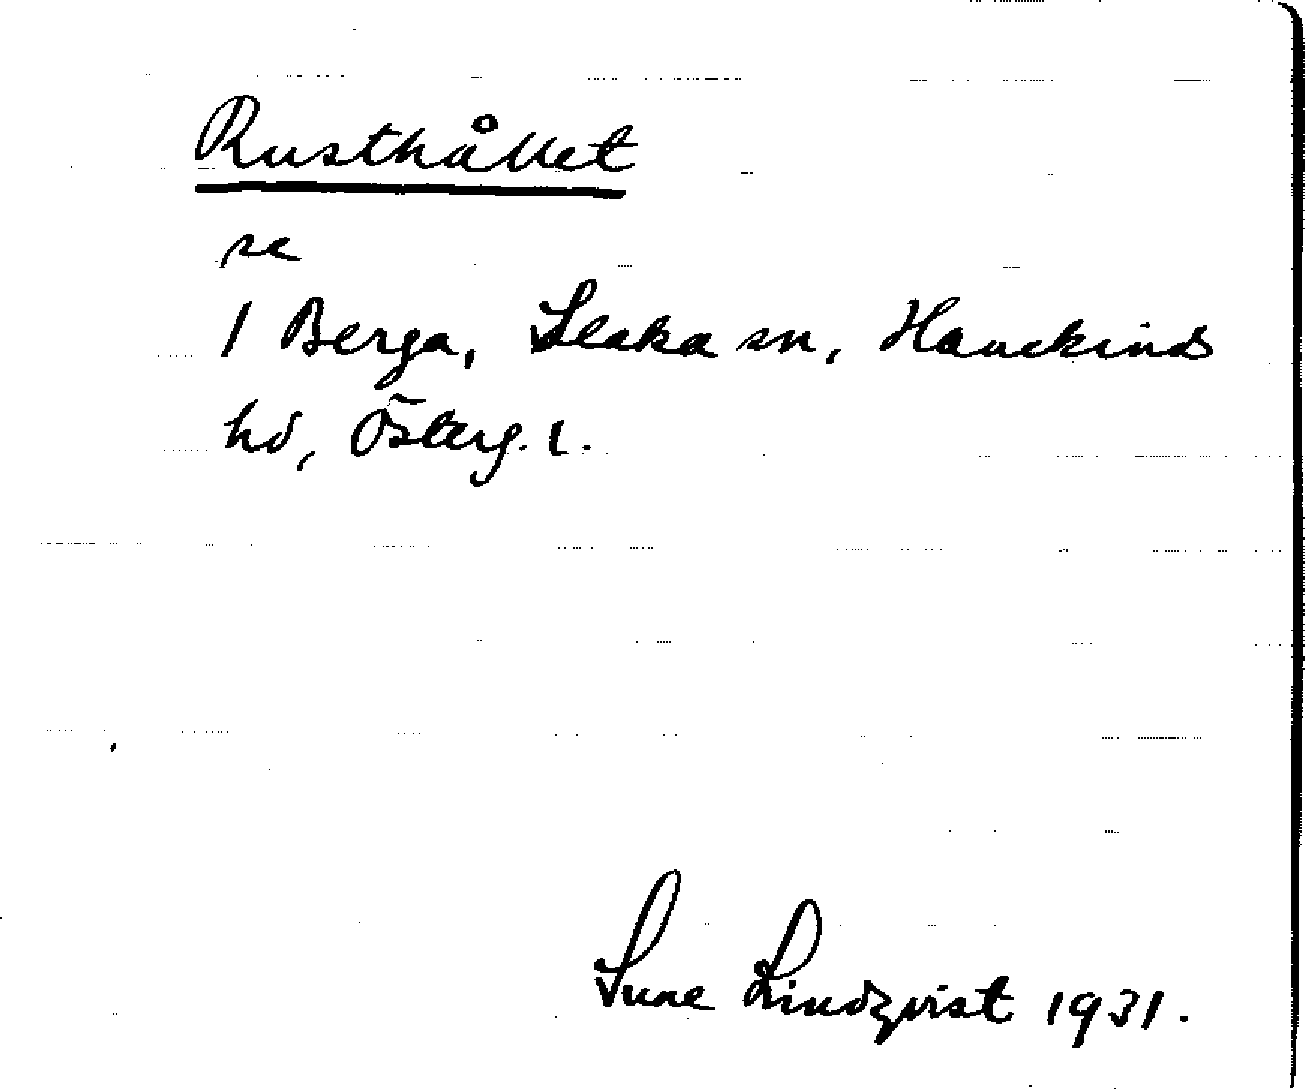 Rusthållet
se
1 Berga, Slaka sn, Hanekinds
hd, Österg. l.
Sune Lindqvist 1931.